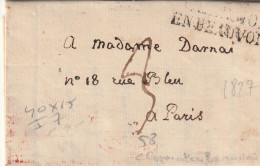 EN BEAUVOI
A Madame Darnai
n° 18 rue Bleu
à Paris
1827
40x15
I 7
53